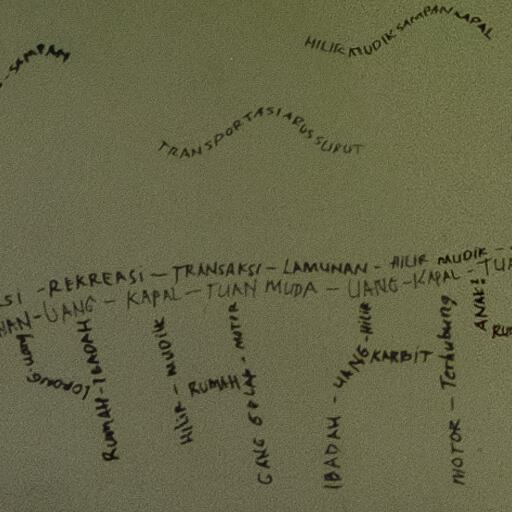 -SAMPAN
HILIR MUDIK SAMPAN KAPAL
TRANSPORTASI ARUS SURUT
SI - REKREASI - TRANSAKSI - LAMUNAN - HILIR MUDIK -
NAN - UANG - KAPAL - TUAN MUDA - UANG - KAPAL - TUA
LORONG
RUMAH - IBADAH
HILIR - MUDIK
RUMAH
GANG GELAP - MOTOR
IBADAH - UANG - HILIR
KARBIT
MOTOR - Terhubung
ANAK2
RU